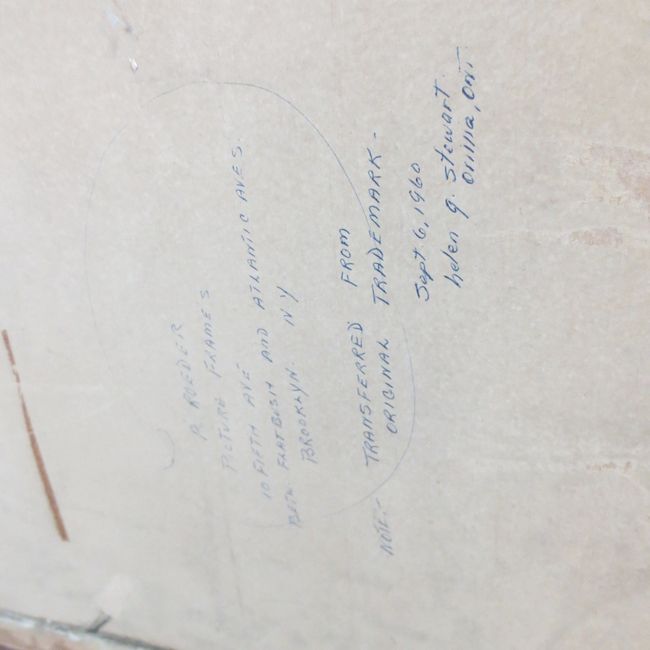 P. ROEDER
PICTURE FRAMES
10 FIFTH AVE
BETW. FLATBUSH AND ATLANTIC AVES.
BROOKLYN. N Y
NOTE:- TRANSFERRED FROM
ORIGINAL TRADEMARK-
Sept. 6, 1960
helen g. stewart.
Orillia, Ont.